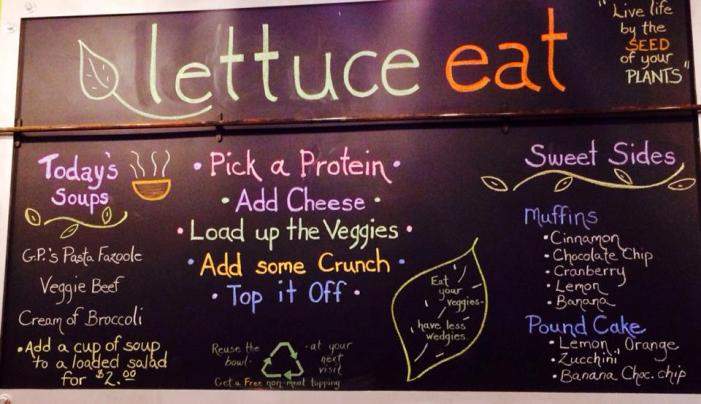 lettuce eat
"Live life
by the
SEED
of your
PLANTS"
Today's
Soups
G.P.'s Pasta Fazoole
Veggie Beef
Cream of Broccoli
• Add a cup of soup
to a loaded salad
for $2.00
• Pick a Protein •
• Add Cheese •
• Load up the Veggies •
• Add some Crunch •
• Top it Off •
Reuse the
bowl-
-at your
next
visit
Get a Free non-meat topping
Eat
your
veggies-
have less
wedgies.
Sweet Sides
Muffins
• Cinnamon
• Chocolate Chip
• Cranberry
• Lemon
• Banana
Pound Cake
• Lemon, Orange
• Zucchini
• Banana Choc. chip